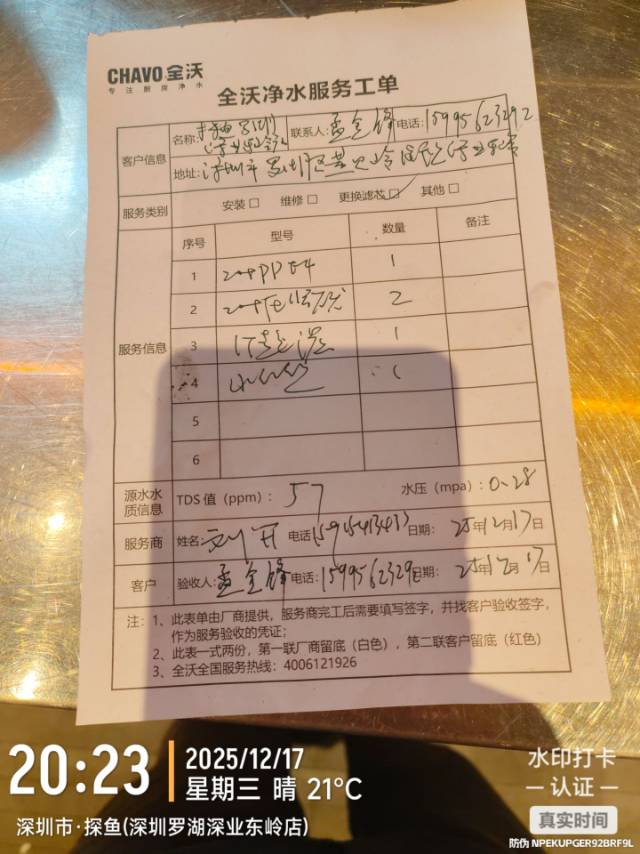 CHAVO 全沃
专注厨房净水
全沃净水服务工单
客户信息 名称: 探鱼罗湖 深业东岭店 联系人: 孟全锋 电话: 15995623292
地址: 深圳市罗湖区
服务类别 安装 □ 维修 □ 更换滤芯 □ 其他 □
服务信息 序号 型号 数量 备注
1 1
2 2
3 1
4
5
6
源水水质信息 TDS 值（ppm）: 57 水压（mpa）: 0.28
服务商 姓名: 刘开 电话: 日期: 25年12月17日
客户 验收人: 孟全锋 电话: 1599562329 日期: 25年12月17日
注: 1、此表单由厂商提供，服务商完工后需要填写签字，并找客户验收签字，
作为服务验收的凭证；
2、此表一式两份，第一联厂商留底（白色），第二联客户留底（红色）
3、全沃全国服务热线: 4006121926
20:23
2025/12/17
星期三 晴 21°C
深圳市·探鱼(深圳罗湖深业东岭店)
水印打卡
认证
真实时间
防伪 NPEKUPGER92BRF9L